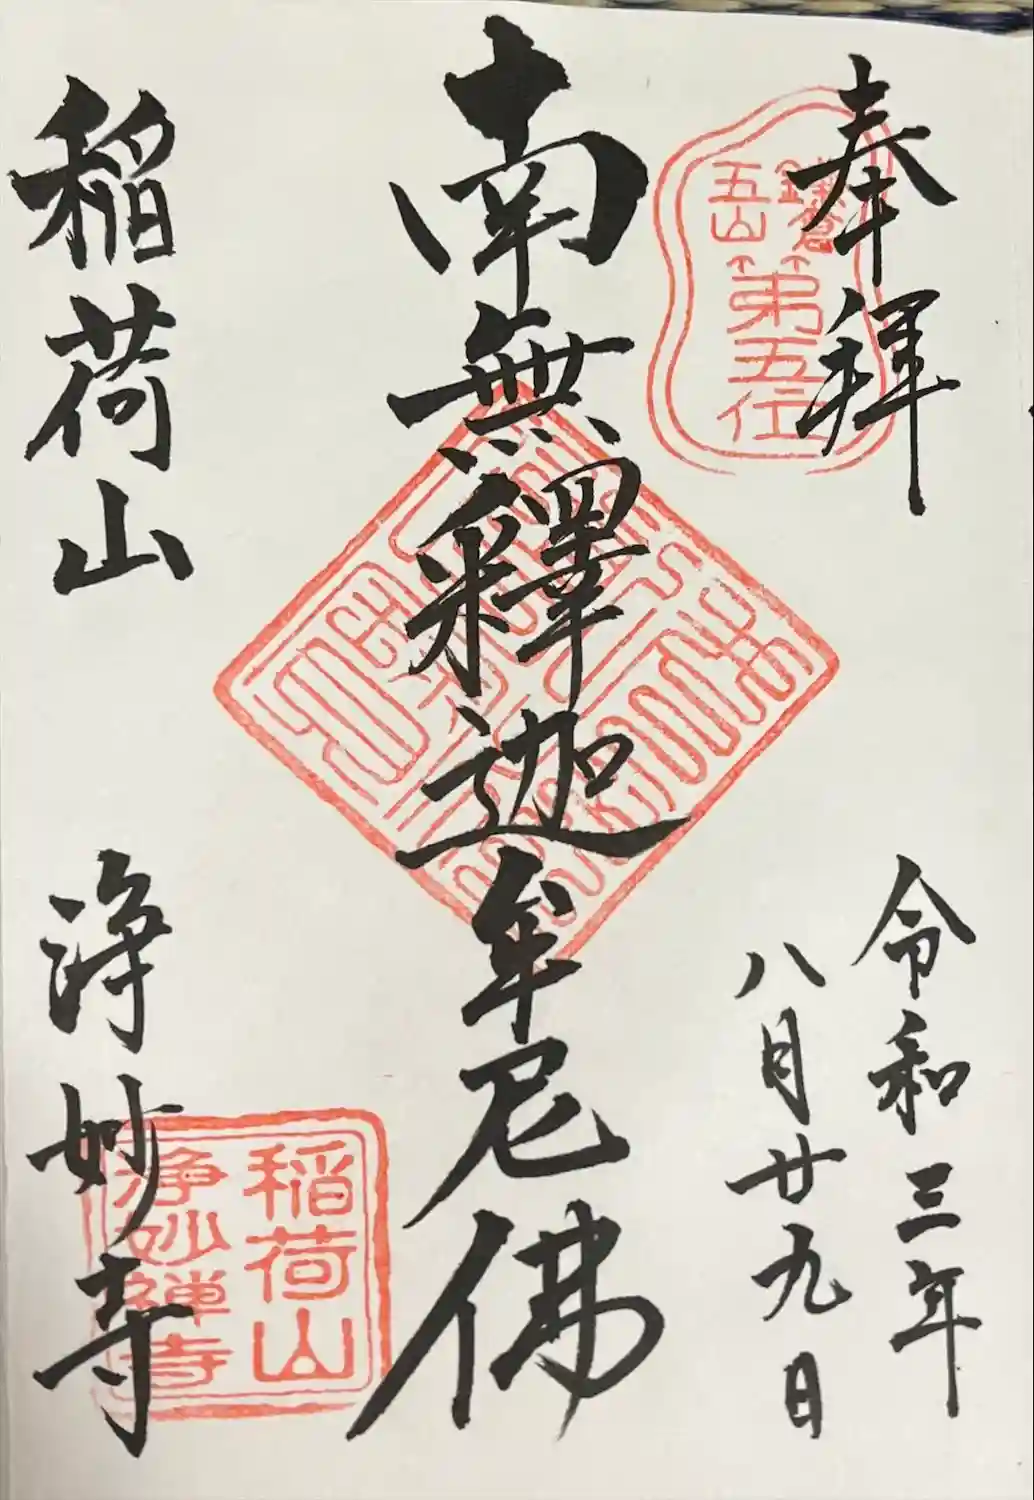 奉拝
鎌倉
五山
第五位
令和三年
八月廿九日
南無釋迦牟尼佛
稲荷山
浄妙寺
稲荷山
浄妙禅寺